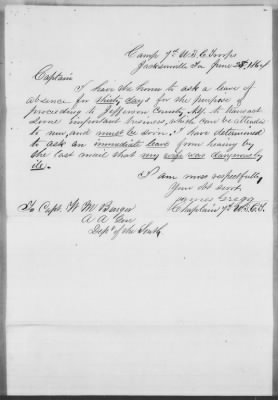 Camp 7th U.S.C. Troops
Jacksonville Fa June 25th 1864
Captain
I have the honor to ask a leave of
absence for thirty days for the purpose of
proceeding to Jefferson County, N.Y. to transact
some important business, which can be attended
to now, and must be soon. I have determined
to ask an immediate leave from hearing by
the last mail that my wife was dangerously
ill.
I am most respectfully,
Your obt servt
James Gregg
Chaplain 7th U.S.C.T.
To Capt. W M Burger
A A Gen
Dept of the South